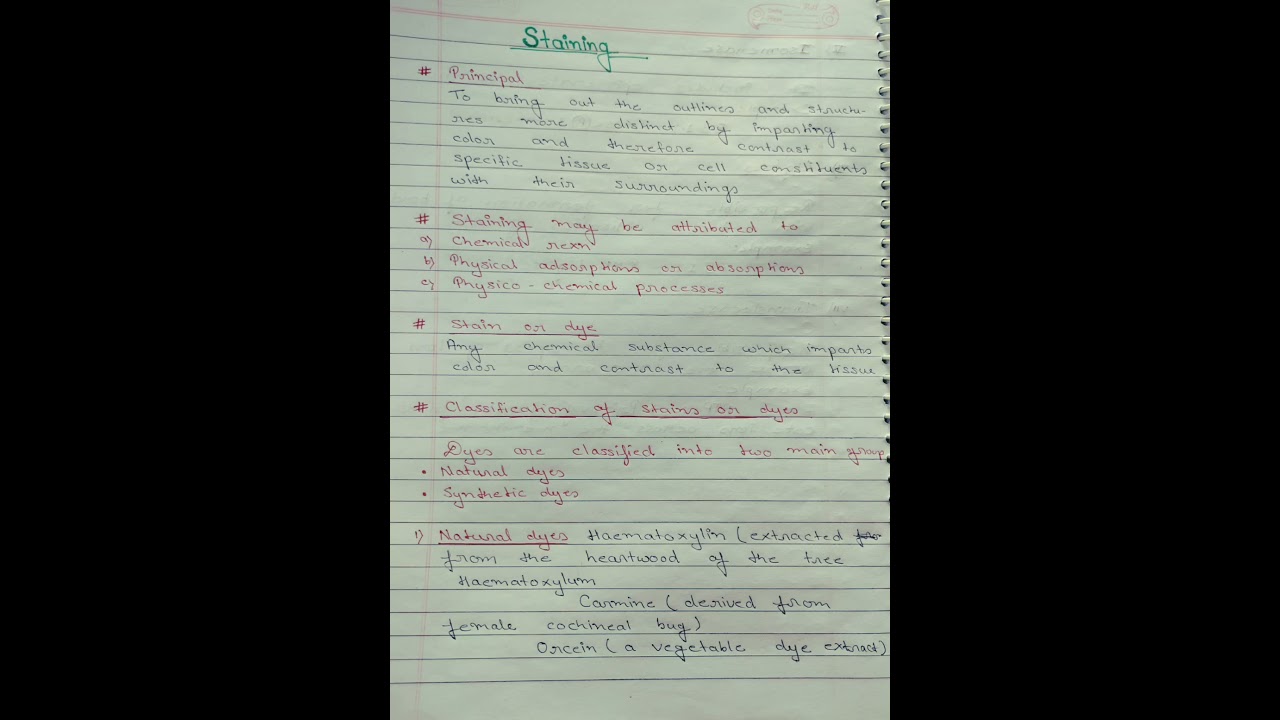 Staining
# Principal
To bring out the outlines and structu-
res more distinct by imparting
color and therefore contrast to
specific tissue or cell constituents
with their surroundings
# Staining may be attributed to
a) Chemical rexn
b) Physical adsorptions or absorptions
c) Physico - chemical processes
# Stain or dye
Any chemical substance which imparts
color and contrast to the tissue
# Classification of stains or dyes
Dyes are classified into two main group
• Natural dyes
• Synthetic dyes
1) Natural dyes Haematoxylin (extracted
from the heartwood of the tree
Haematoxylum
Carmine (derived from
female cochineal bug)
Orcein (a vegetable dye extract)